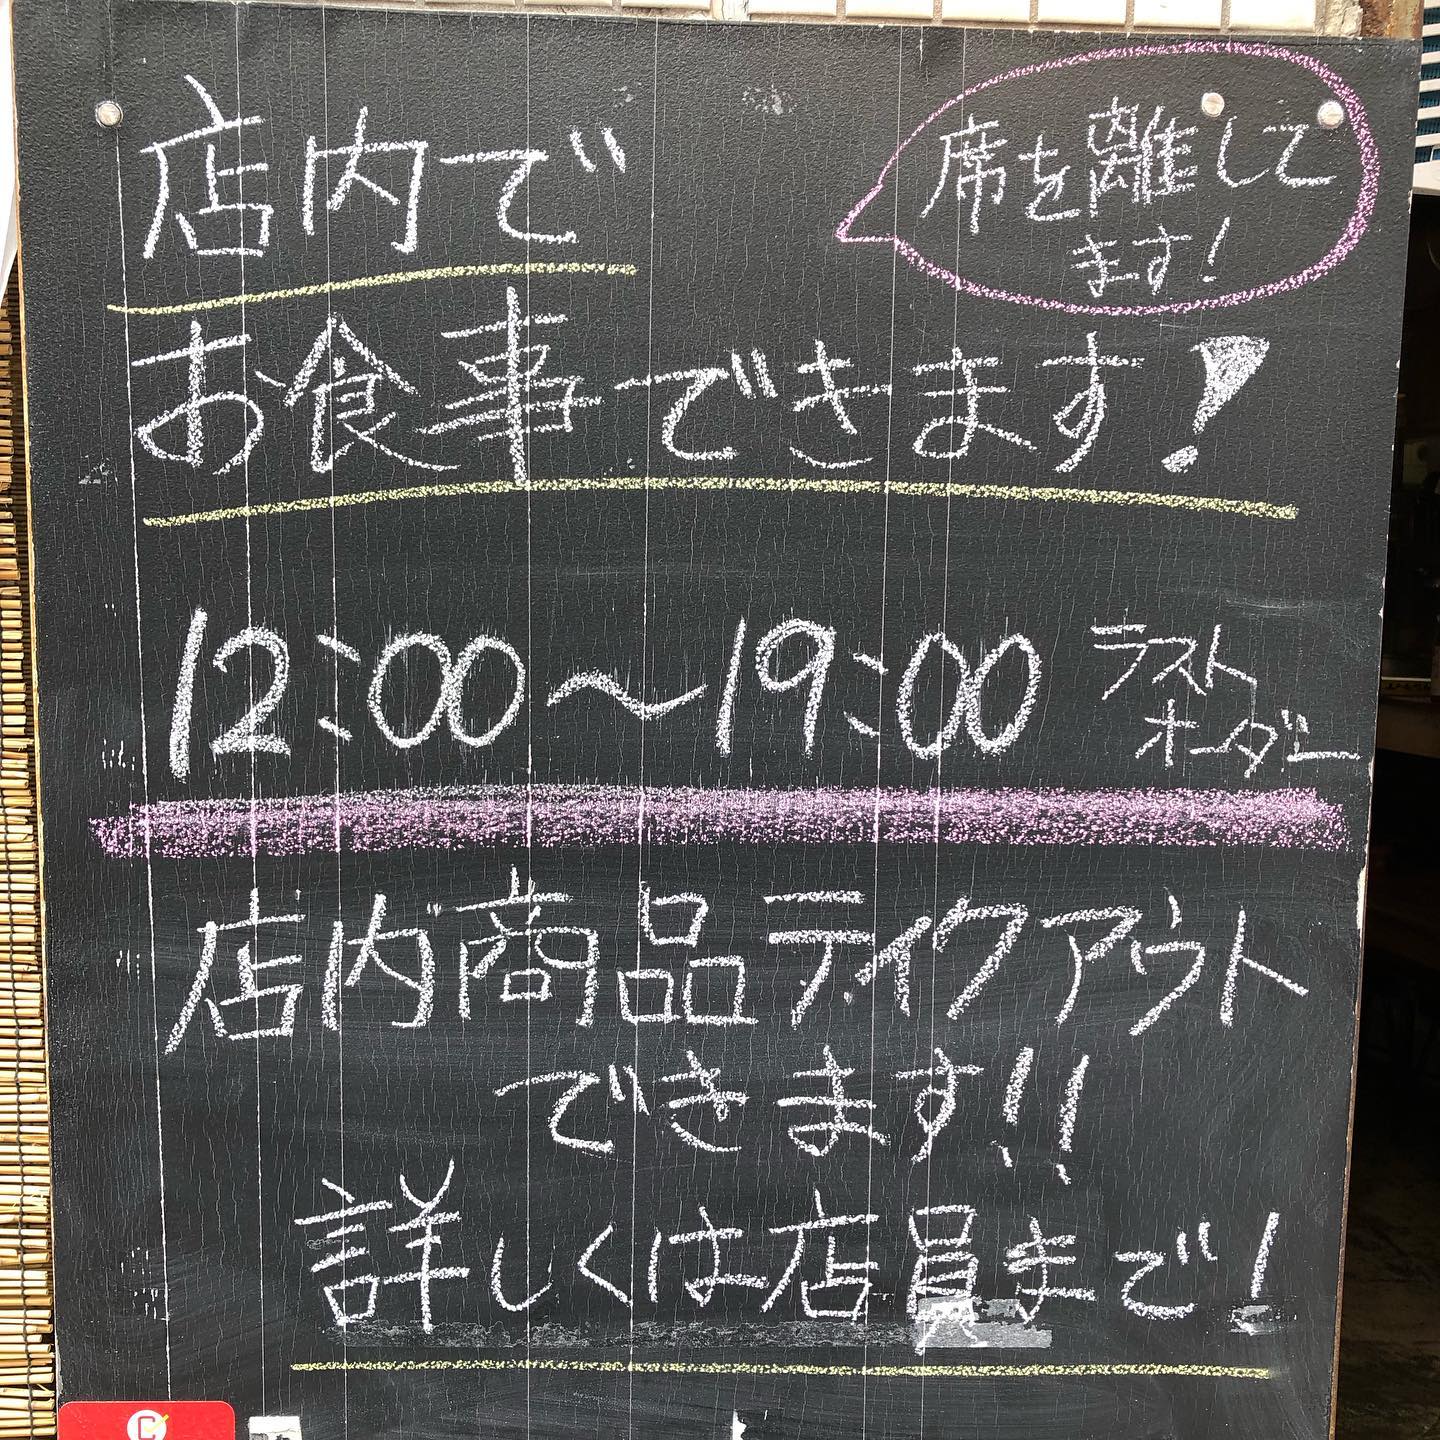 店内で
席を離して
ます!
お食事できます!
12:00〜19:00
ラスト
オーダー
店内商品テイクアウト
できます!!
詳しくは店員まで!